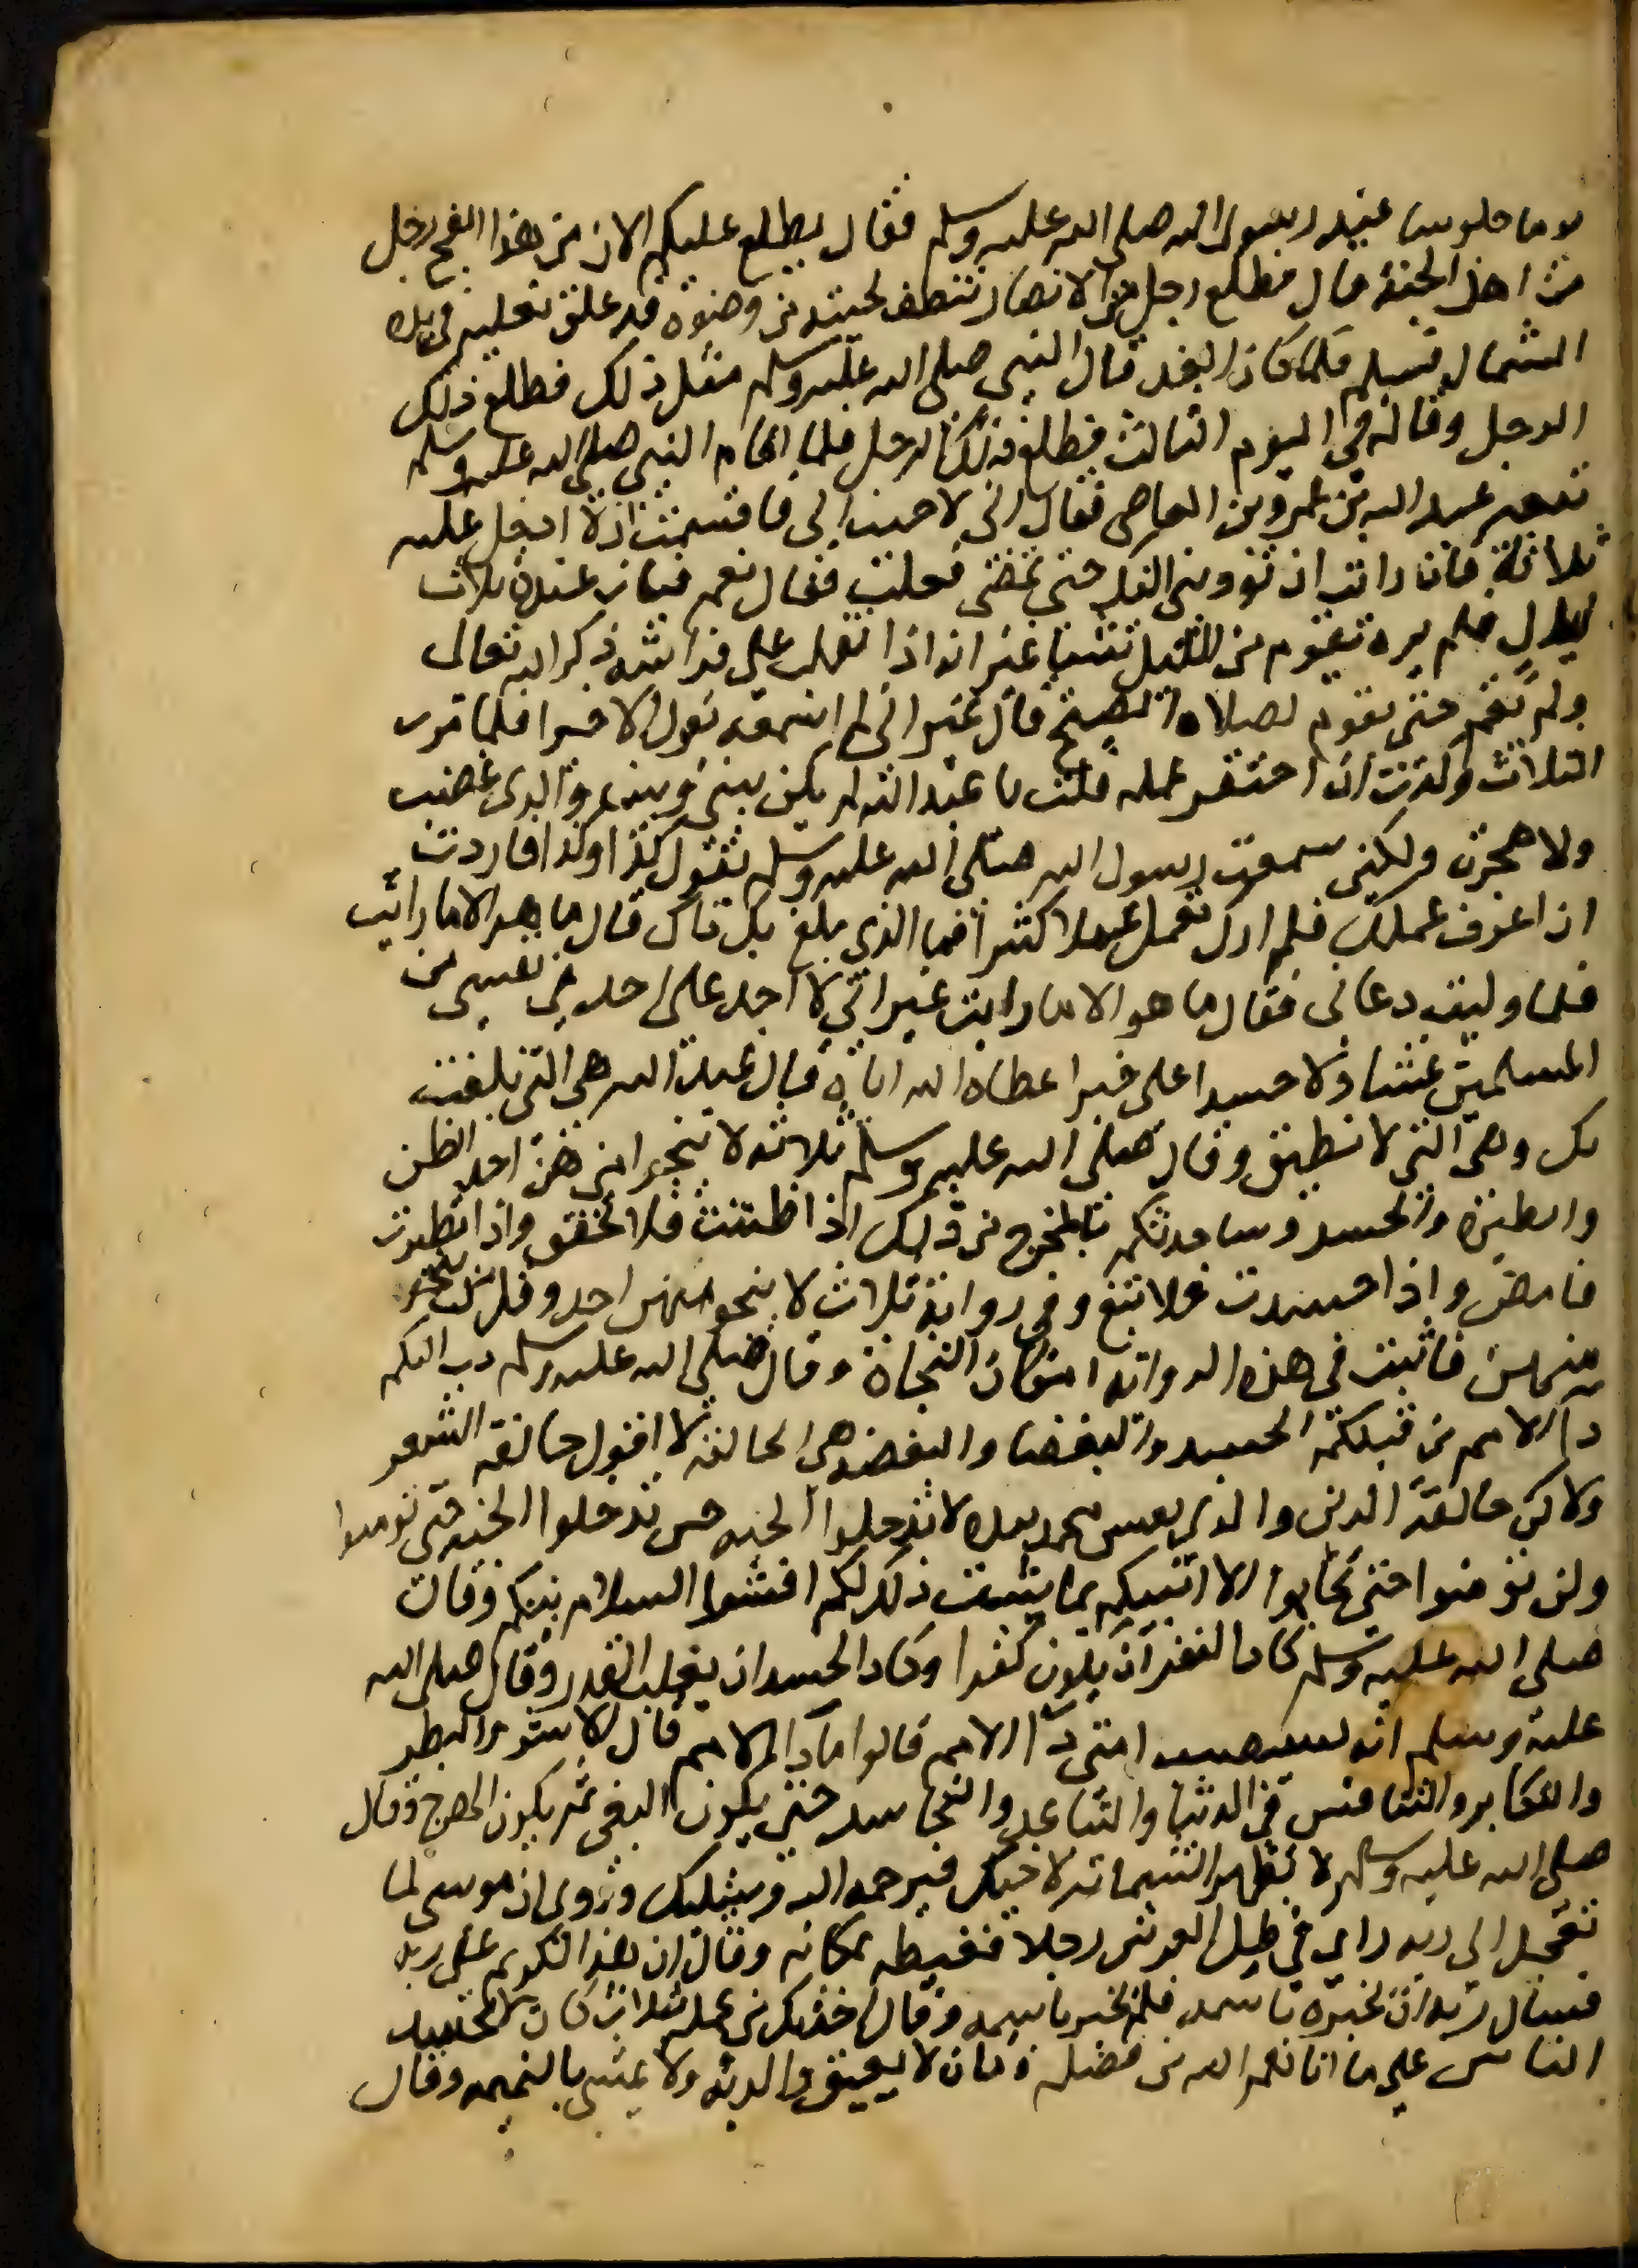 يوما جلوسا عند رسول الله صلى الله عليه وسلم فقال يطلع عليكم الان من هذا الفج رجل
من اهل الجنة قال فطلع رجل من الانصار تنطف لحيته من وضوه قد علق نعليه في يده
الشمال فسلم فلما كان الغد قال النبي صلى الله عليه وسلم مثل ذلك فطلع ذلك
الرجل وقاله في اليوم الثالث فطلع ذلك الرجل فلما قام النبي صلى الله عليه وسلم
تبعه عبد الله بن عمرو بن العاص فقال اني لاحيت ابي فاقسمت ان لا ادخل عليه
ثلاثة فان رايت ان تؤويني اليك حتى تمضي فعلت فقال نعم فبات عنده ثلاث
ليال فلم يره يقوم من الليل شيا غير انه اذا تقلب على فراشه ذكر الله تعالى
ولم يقم حتى يقوم لصلاة الصبح قال غير اني لم اسمعه يقول الا خيرا فلما مرت
الثلاث وكدت ان احتقر عمله قلت يا عبد الله لم يكن بيني وبين والدي غضب
ولا هجرة ولكني سمعت رسول الله صلى الله عليه وسلم يقول كذا وكذا فاردت
ان اعرف عملك فلم ارك تعمل عملا كثيرا فما الذي بلغ بك ذاك قال ما هو الا ما رايت
فلما وليت دعاني فقال ما هو الا ما رايت غير اني لا اجد على احد في نفسي من
المسلمين غشا ولا حسدا على خير اعطاه الله اياه قال عبد الله هي التي بلغت
بك وهي التي لا نطيق وقال صلى الله عليه وسلم ثلاثة لا ينجوا من هن احد الظن
والطيرة والحسد وساحدثكم بالمخرج من ذلك اذا ظننت فلا تحقق واذا تطيرت
فامض واذا حسدت فلا تبغ وفي رواية ثلاث لا ينجو منهن احد وقل من ينجو
منهن فاثبت في هذه الرواية امكان النجاة وقال صلى الله عليه وسلم دب اليكم
دآ الامم من قبلكم الحسد والبغضا والبغضه هي الحالقة لا اقول حالقة الشعر
ولاكن حالقة الدين والذي نفس محمد بيده لا تدخلوا الجنه حتى تدخلوا الجنه حتى تومنوا
ولن تؤمنوا حتى تحابوا الا انبيكم بما يثبت ذلك لكم افشوا السلام بينكم وقال
صلى الله عليه وسلم كاد الفقر ان يكون كفرا وكاد الحسد ان يغلب القدر وقال صلى الله
عليه وسلم انه سيصيب امتي دآ الامم قالوا ما دآ الامم قال الاشر والبطر
والتكاثر والتنافس في الدنيا والتباعد والتحاسد حتى يكون البغي ثم يكون الهرج وقال
صلى الله عليه وسلم لا تظهر الشماتة لاخيك فيرحمه الله ويبتليك وروي ان موسى لما
تعجل الى ربه راى في ظل العرش رجلا فغبطه بمكانه وقال ان هذا لكريم على ربه
فسال ربه ان يخبره باسمه فلم يخبر باسمه وقال احدثك من عمله بثلاث كان لا يحسد
الناس على ما اتاهم الله من فضله وكان لا يعق والديه ولا يمشي بالنميمه وقال